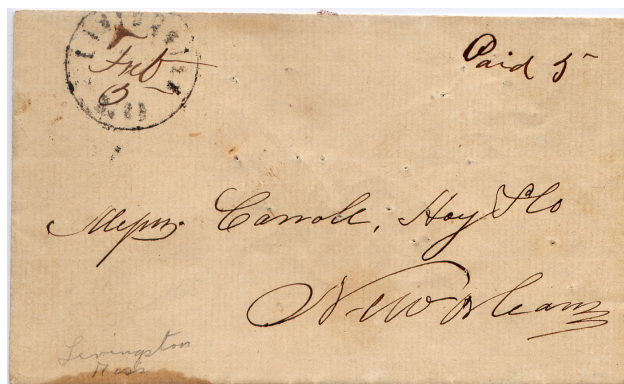 LIVINGSTON
Feb
5
MISS
Paid 5
Messrs. Carroll, Hoy & Co
New Orleans
Livingston
Miss